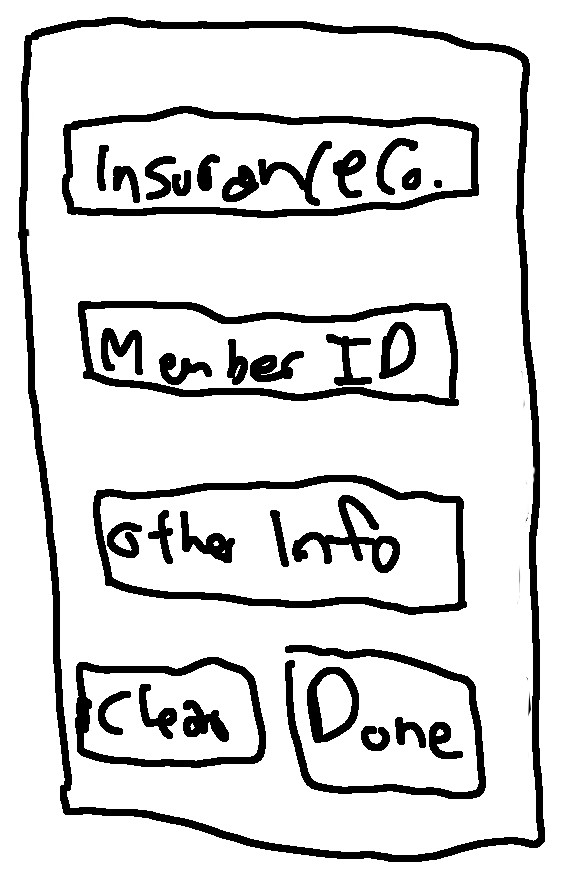 Insurance Co.
Member ID
Other Info
Clear Done